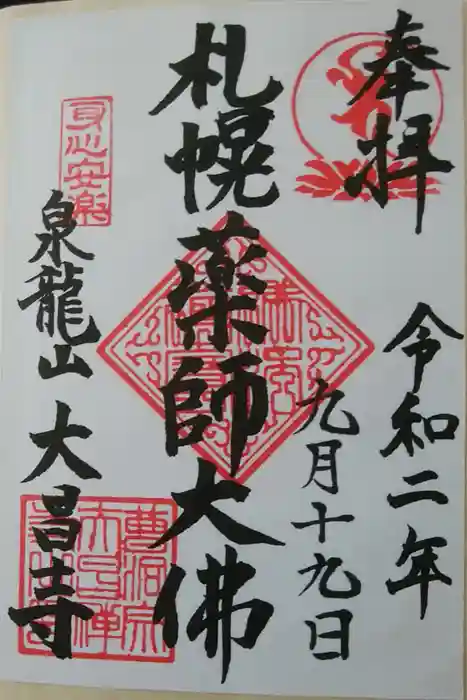 奉拝
令和二年
九月十九日
札幌薬師大佛
身心安楽
泉龍山 大昌寺
曹洞宗
大昌禅